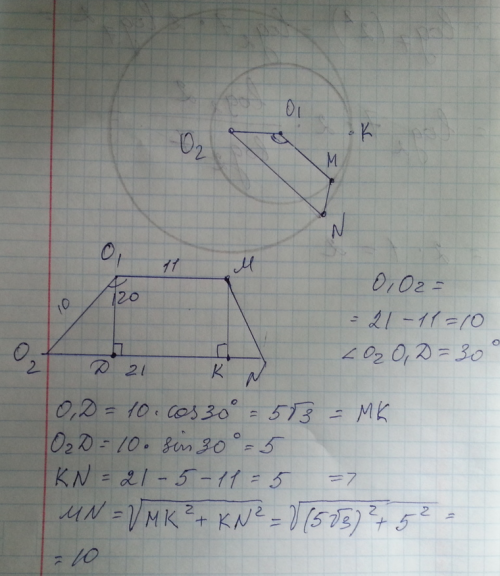 O₁
O₂
K
M
N
O₁ 11 M
10
120
O₂ D 21 K N
O₁O₂ =
= 21 - 11 = 10
∠O₂O₁D = 30°
O₁D = 10 · cos30° = 5√3 = MK
O₂D = 10 · sin30° = 5
KN = 21 - 5 - 11 = 5 =>
MN = √(MK² + KN²) = √((5√3)² + 5²) =
= 10